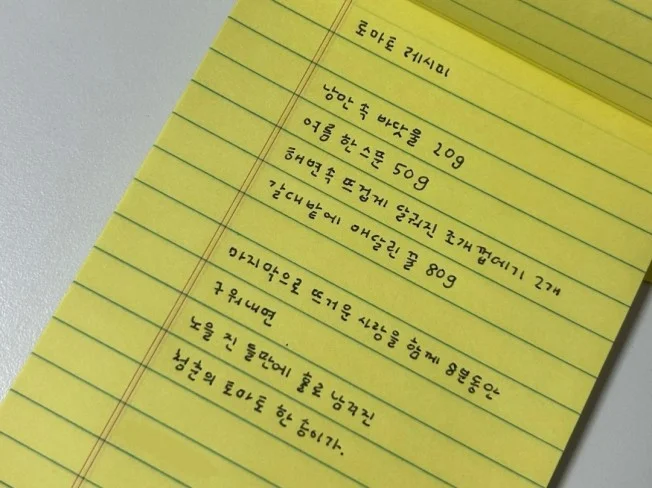 토마토 레시피
낭만 속 바닷물 20g
여름 한 스푼 50g
해변속 뜨겁게 달궈진 조개 껍데기 2개
갈대밭에 매달린 꿀 80g
마지막으로 뜨거운 사랑을 함께 8분동안
구워내면
노을 진 들판에 홀로 남겨진
청춘의 토마토 한 송이가.